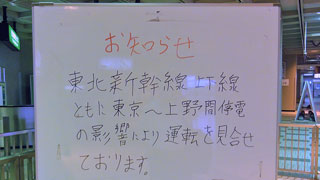 お知らせ
東北新幹線上下線
ともに東京〜上野間停電
の影響により運転を見合せ
ております。